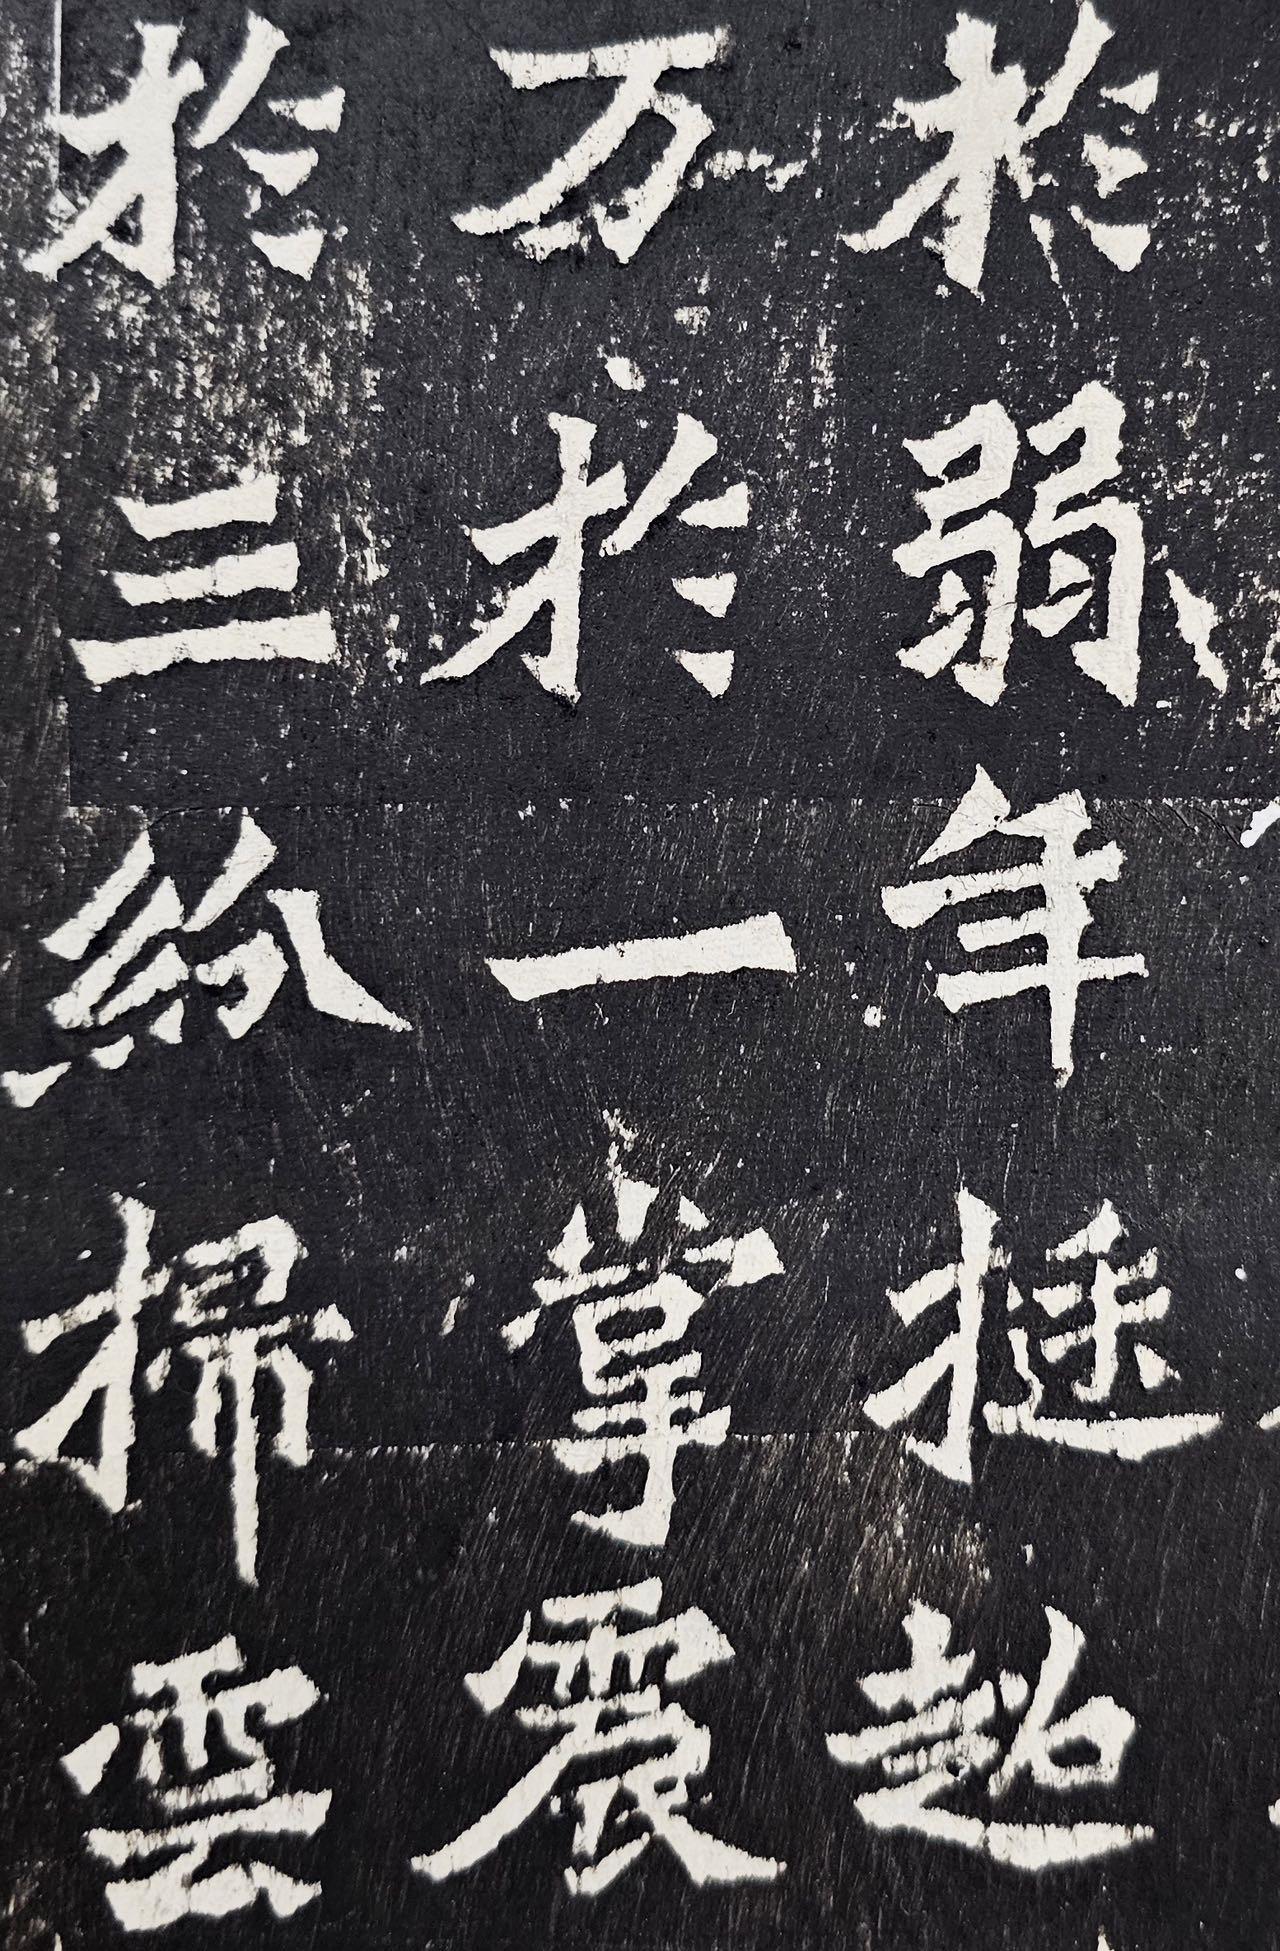 於弱年挺超
万於一掌震
於三紛掃雲